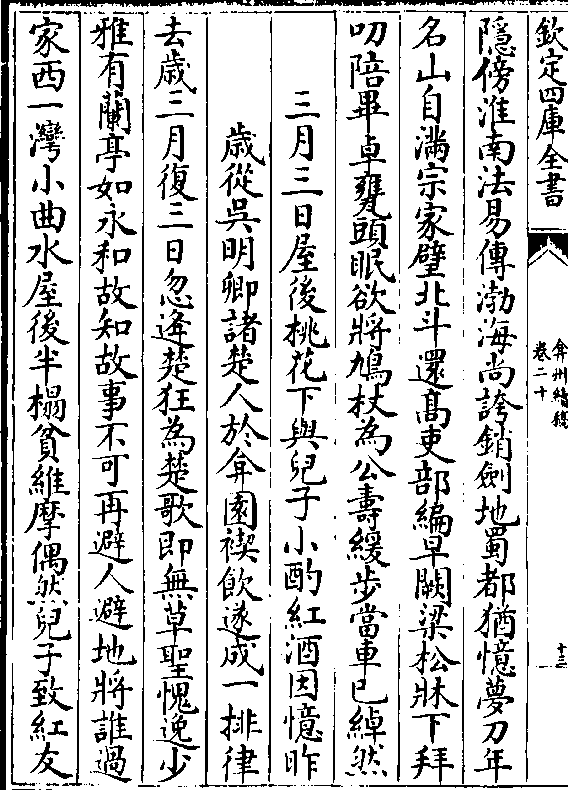 欽定四庫全書
弇州續稿
卷二十
十三
隱傍淮南法易傳渤海尚誇銷劍地蜀都猶憶夢刀年
名山自滿宗家壁北斗還髙吏部編早闕梁松牀下拜
叨陪畢卓甕頭眠欲將鳩杖為公壽緩步當車已綽然
三月三日屋後桃花下與兒子小酌紅酒因憶昨
歲從吳明卿諸楚人於弇園禊飲遂成一排律
去歳三月復三日忽逢楚狂為楚歌即無草聖愧逸少
雅有蘭亭如永和故知故事不可再避人避地將誰過
家西一灣小曲水屋後半榻貧維摩偶然兒子致紅友